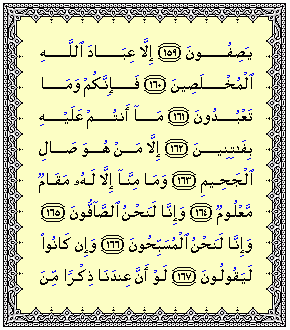 يَصِفُونَ ١٥٩ إِلَّا عِبَادَ ٱللَّهِ
ٱلْمُخْلَصِينَ ١٦٠ فَإِنَّكُمْ وَمَا
تَعْبُدُونَ ١٦١ مَآ أَنتُمْ عَلَيْهِ
بِفَٰتِنِينَ ١٦٢ إِلَّا مَنْ هُوَ صَالِ
ٱلْجَحِيمِ ١٦٣ وَمَا مِنَّآ إِلَّا لَهُۥ مَقَامٌ
مَّعْلُومٌ ١٦٤ وَإِنَّا لَنَحْنُ ٱلصَّآفُّونَ ١٦٥
وَإِنَّا لَنَحْنُ ٱلْمُسَبِّحُونَ ١٦٦ وَإِن كَانُوا۟
لَيَقُولُونَ ١٦٧ لَوْ أَنَّ عِندَنَا ذِكْرًا مِّنَ